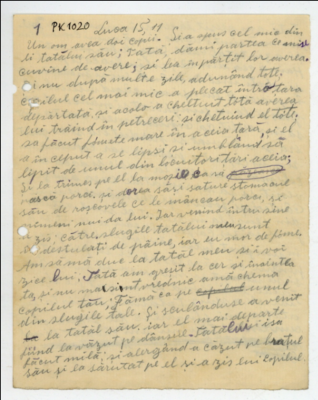 1 PK1020 Luca 15, 11
Un om avea doi copii. Și a spus cel mic din
ei tatălui său; tată, dămi partea ce mi se
cuvine de avere; și lea împărțit lor averea.
Și nu după multe zile, adunând tot;
copilul cel mai mic a plecat într-o țară
depărtată, și acolo a cheltuit totă averea
lui trăind în petreceri: și cheltuind el tot;
sa făcut foamete mare în aceia țară, și el
a început a se lipsi și umblând să
lipit de unul din locuitorii țării aceia;
Și la trimes pe el la moșie ca să
pască porci. și dorea săși sature stomacul
său de roșcovele ce le mâncau porci, și
nimeni nui da lui. Iar venind întru sine
a zis, câte slugile tatălui meu sunt
îndestulați de pâine, iar eu mor de foame.
Am să mă duc la tatăl meu și îi voi
zice lui, Tată am greșit la cer și înaintea
ta, și nu mai sînt vrednic a mă chema
copilul tău; Fă mă ca pe unul
din slugile tale. Și sculânduse a venit
la tatăl său, iar el mai departe
fiind la văzut pe dânsul tatăl lui și sa
făcut milă; și alergând a căzut pe brațul
său și la sărutat pe el și a zis lui copilul.